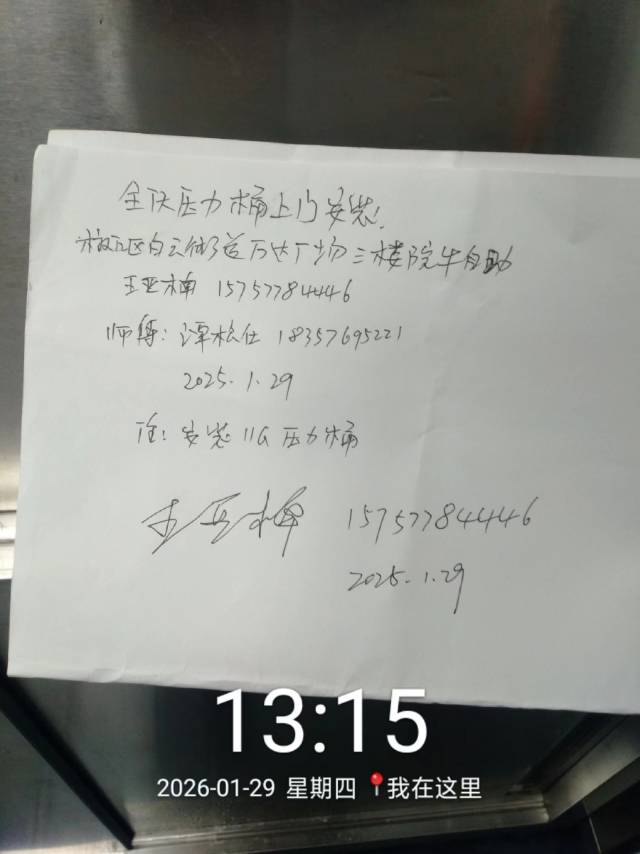 压力桶上门安装
区白云街道万达广场三楼院牛自助
王亚楠 15757784446
师傅:谭松仕 18357695221
2025.1.29
注:安装11G压力桶
王亚楠 15757784446
2025.1.29
13:15
2026-01-29 星期四 📍我在这里